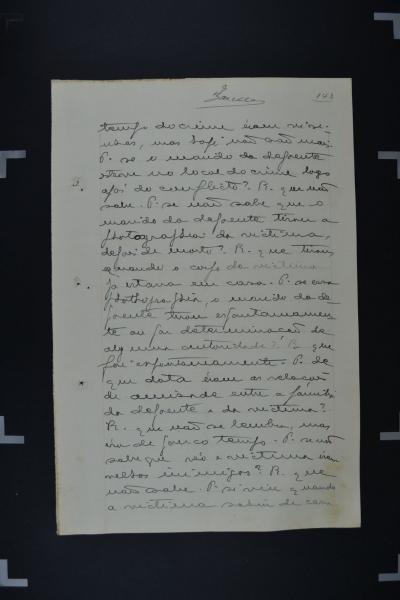 143
tempo do crime eram visi-
nhas, mas hoje não são mais.
P. se o marido da depoente
esteve no local do crime logo
após do conflicto? R. que não
sabe. P. se não sabe que o
marido da depoente tirou a
photographia da victima,
depois de morto? R. que tirou,
quando o corpo da victima
já estava em casa. P. se essa
photographia, o marido da de-
poente tirou espontaneamen-
te ou por determinação de
alguma autoridade? R. que
foi espontaneamente. P. de
que data eram as relações
de amisade entre a familia
da depoente e da victima?
R. que não se lembra, mas
era de pouco tempo. P. se não
sabe que réo e victima eram
velhos inimigos? R. que
não sabe. P. se viu quando
a victima sahiu de casa